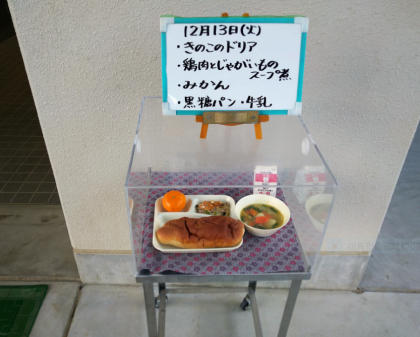 12月13日(火)
・きのこのドリア
・鶏肉とじゃがいもの
スープ煮
・みかん
・黒糖パン・牛乳